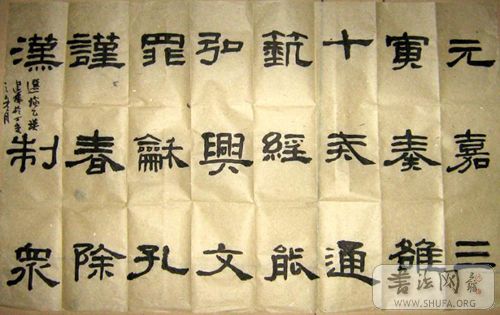 元嘉三
寅奏雒
十通
藝經能
弘興文
罪龢孔
謹春除
漢制眾
书法网
WWW.SHUFA.ORG